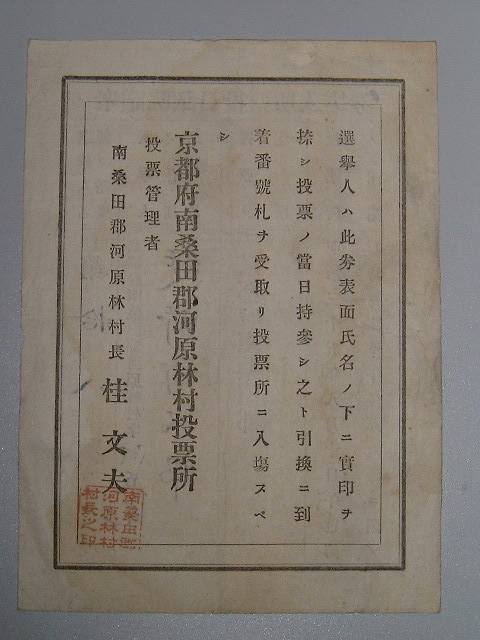 選擧人ハ此券表面氏名ノ下ニ實印ヲ
捺シ投票ノ當日持參シ之ト引換ニ到
着番號札ヲ受取リ投票所ニ入塲スベ
シ
京都府南桑田郡河原林村投票所
投票管理者
南桑田郡河原林村長 桂文夫
南桑田郡
河原林村
村長之印